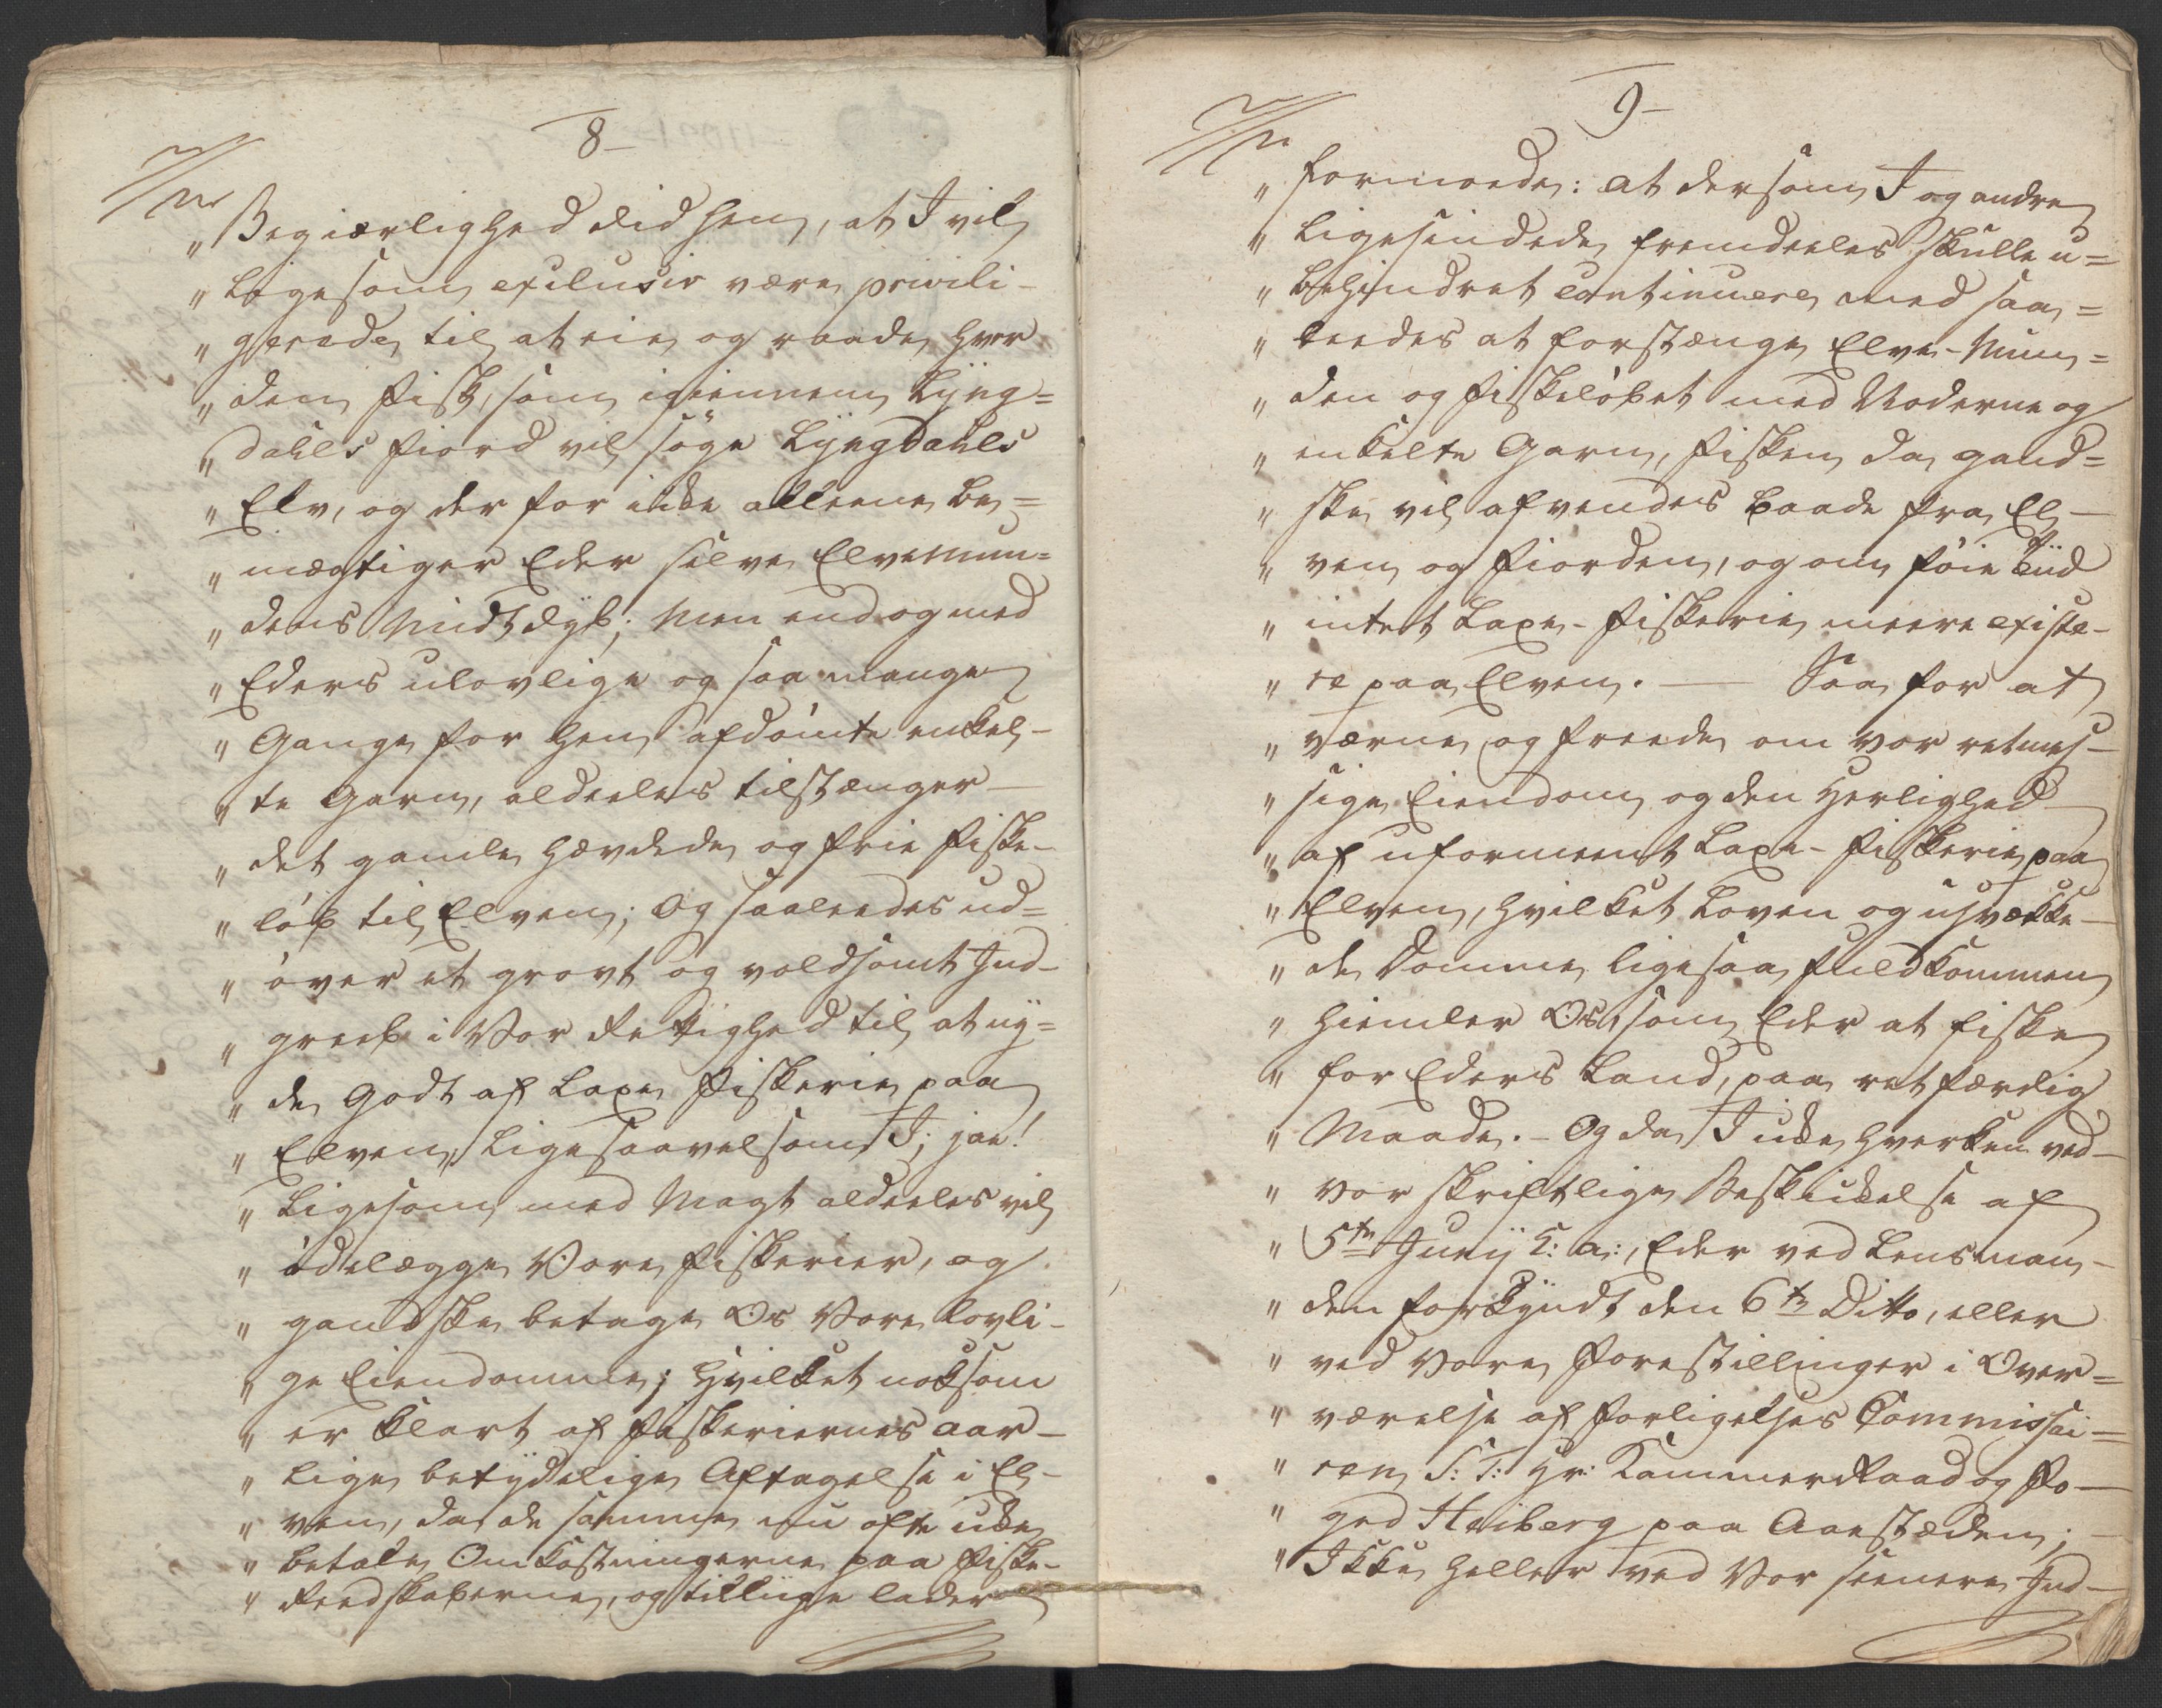 8
„ Begiærlighed did hen, at I vil
„ ligesom exclusiv være privili-
„ gerede til at eie og raade hver
„ den Fisk, som igiennem Lyng=
„ dahls Fiord vil søge Lyngdahls
„ Elv, og der for ikke alleene be=
„ mægtiger Eder selve Elvemun=
„ dens Midtdyb; Men endog med
„ Eders ulovlige og saa mange
„ Gange for hen afdømte enkel-
„ te Garn, aldeeles tilstænger
„ det gamle hævdede og frie Fiske-
„ løb til Elven; Og saaleedes ud=
„ øver et grovt og voldsomt Ind-
„ greeb i Vor Rettighed til at ny=
„ de godt af Laxe Fiskerie paa
„ Elven, ligesaavelsom I; jae!
„ Ligesom med Magt aldeeles vil
„ ødelægge Vore Fiskerier, og
„ gandske betage Os Vore lovli-
„ ge Eiendomme; Hvilket noksom
„ er klart af Fiskeriernes aar-
„ lige betydelige Aftagelse i El-
„ ven, da de samme nu ofte ikke
„ betale Omkostningerne paa Fiske-
„ Reedskaberne, og tillige lader
9
„ formoede: at dersom I og andre
„ Ligesindede fremdeeles skulle u=
„ behindret continuere med saa=
„ leedes at forstænge Elve-Mun=
„ den og Fiskeløbet med Noderne og
„ enkelte Garn, Fisken da gand=
„ ske vil afvendes baade fra El-
„ ven og Fiorden, og om føie Tiid
„ intet Laxe-Fiskerie meere existe-
„ re paa Elven. — Saa for at
„ værne og freede om vor retmes-
„ sige Eiendom og den Herlighed
„ af uformeent Laxe-Fiskerie paa
„ Elven, hvilket Loven og usvække-
„ de Domme ligesaa fuldkommen
„ hiemler Os, som Eder at fiske
„ for Eders Land, paa retfærdig
„ Maade. – Og da I ikke hverken ved
„ vor skriftlige Beskikkelse af
„ 5te Junij h: a:, Eder ved Lensman-
„ den forkyndt den 6te Ditto, eller
„ ved vore Forestillinger i Over=
„ værelse af Forligelses Commissai=
„ ren S: T: Hr: KammerRaad og Fo-
„ ged Heiberg paa Aaestæden; –
„ Ikke heller ved Vor seenere Ind-